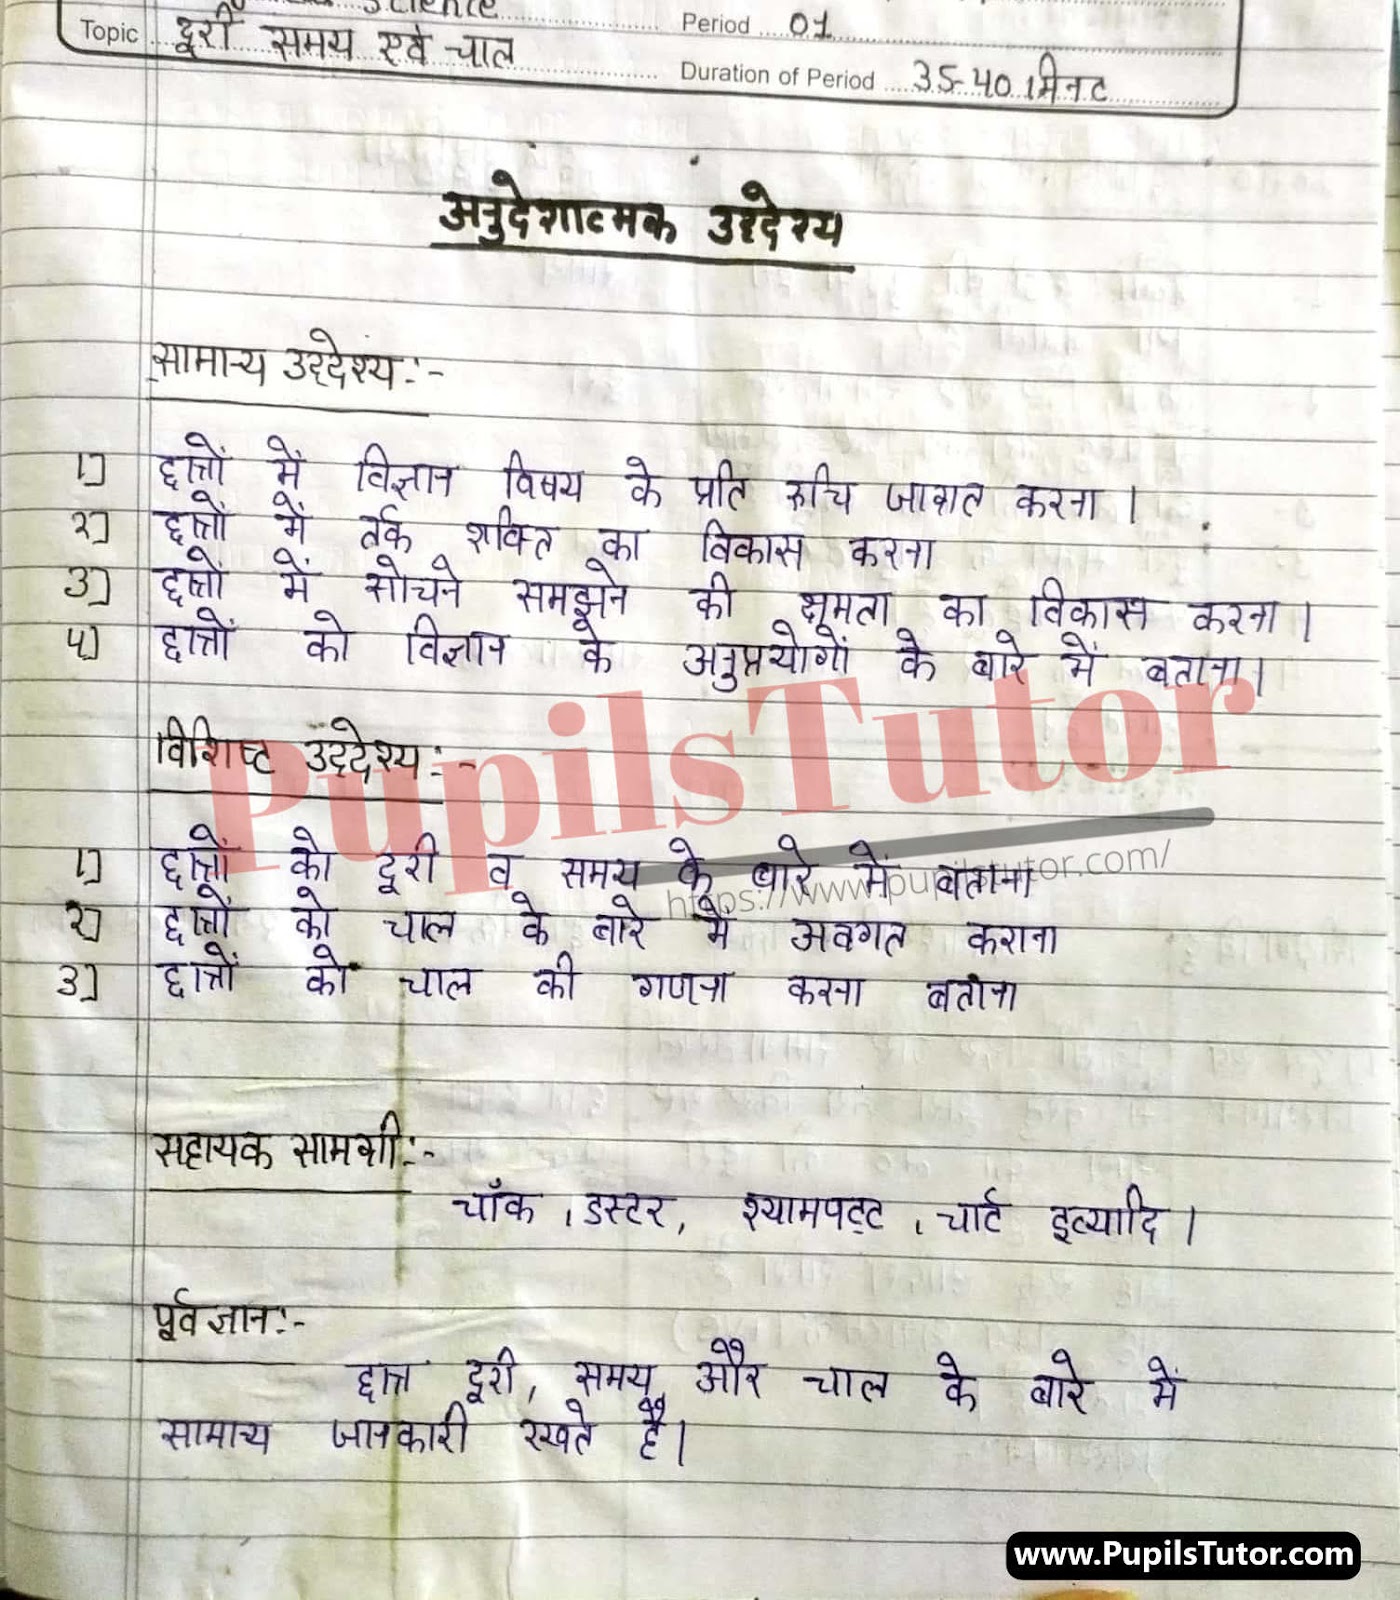 Science
Period 01
Topic दूरी समय एवं चाल
Duration of Period 35-40 मिनट
अनुदेशात्मक उद्देश्य
सामान्य उद्देश्य :-
1) छात्रों में विज्ञान विषय के प्रति रुचि जाग्रत करना ।
२) छात्रों में तर्क शक्ति का विकास करना
३) छात्रों में सोचने समझने की क्षमता का विकास करना ।
४) छात्रों को विज्ञान के अनुप्रयोगों के बारे में बताना।
PupilsTutor
विशिष्ट उद्देश्य :-
1) छात्रों को दूरी व समय के बारे में बताना
https://www.pupilstutor.com/
२) छात्रों को चाल के बारे में अवगत कराना
३) छात्रों को चाल की गणना करना बताना
सहायक सामग्री :-
चॉक , डस्टर, श्यामपट्ट , चार्ट इत्यादि ।
पूर्व ज्ञान :-
छात्र दूरी, समय और चाल के बारे में
सामान्य जानकारी रखते हैं।
www.PupilsTutor.com